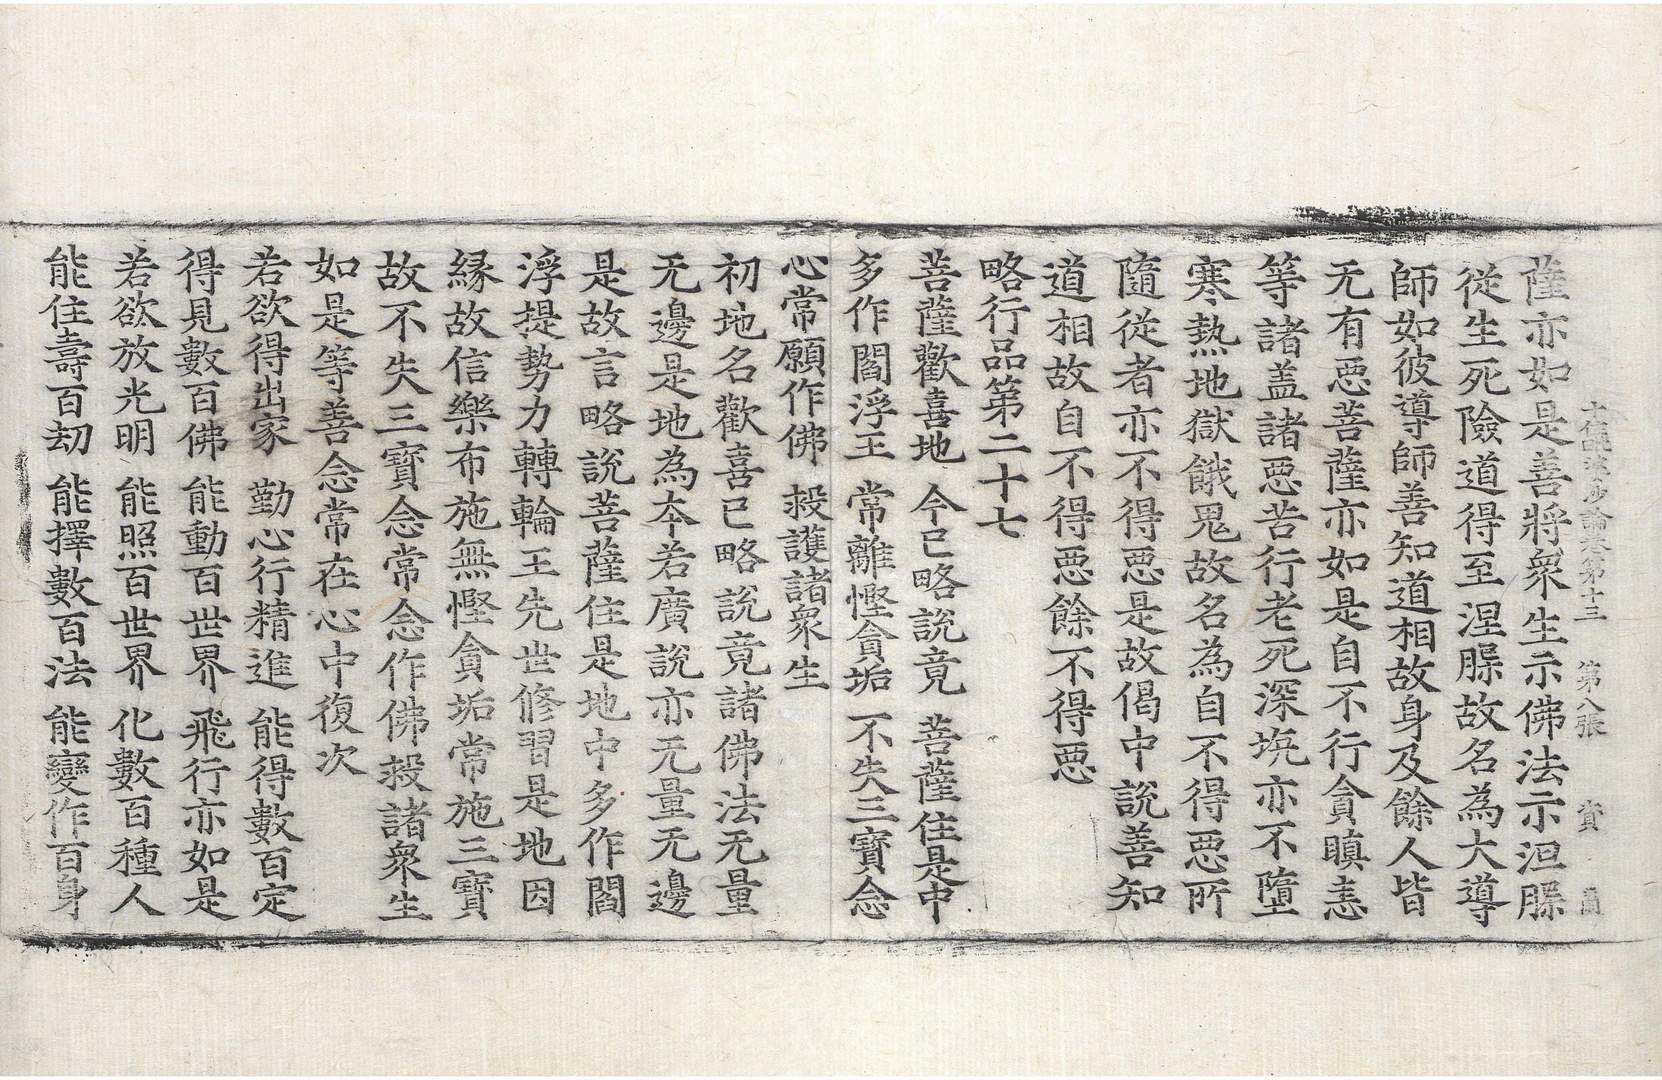 十住毗婆沙論卷第十三 第八張 資
薩亦如是善將衆生示佛法示涅槃
從生死險道得至涅槃故名為大導
師如彼導師善知道相故身及餘人皆
无有惡菩薩亦如是自不行貪瞋恚
等諸蓋諸惡苦行老死深坑亦不墮
寒熱地獄餓鬼故名為自不得惡所
隨從者亦不得惡是故偈中說善知
道相故自不得惡餘不得惡
略行品第二十七
菩薩歡喜地 今已略說竟 菩薩住是中
多作閻浮王 常離慳貪垢 不失三寶念
心常願作佛 救護諸衆生
初地名歡喜已略說竟諸佛法无量
无邊是地為本若廣說亦无量无邊
是故言略說菩薩住是地中多作閻
浮提勢力轉輪王先世修習是地因
緣故信樂布施無慳貪垢常施三寶
故不失三寶念常念作佛救諸衆生
如是等善念常在心中復次
若欲得出家 勤心行精進 能得數百定
得見數百佛 能動百世界 飛行亦如是
若欲放光明 能照百世界 化數百種人
能住壽百劫 能擇數百法 能變作百身